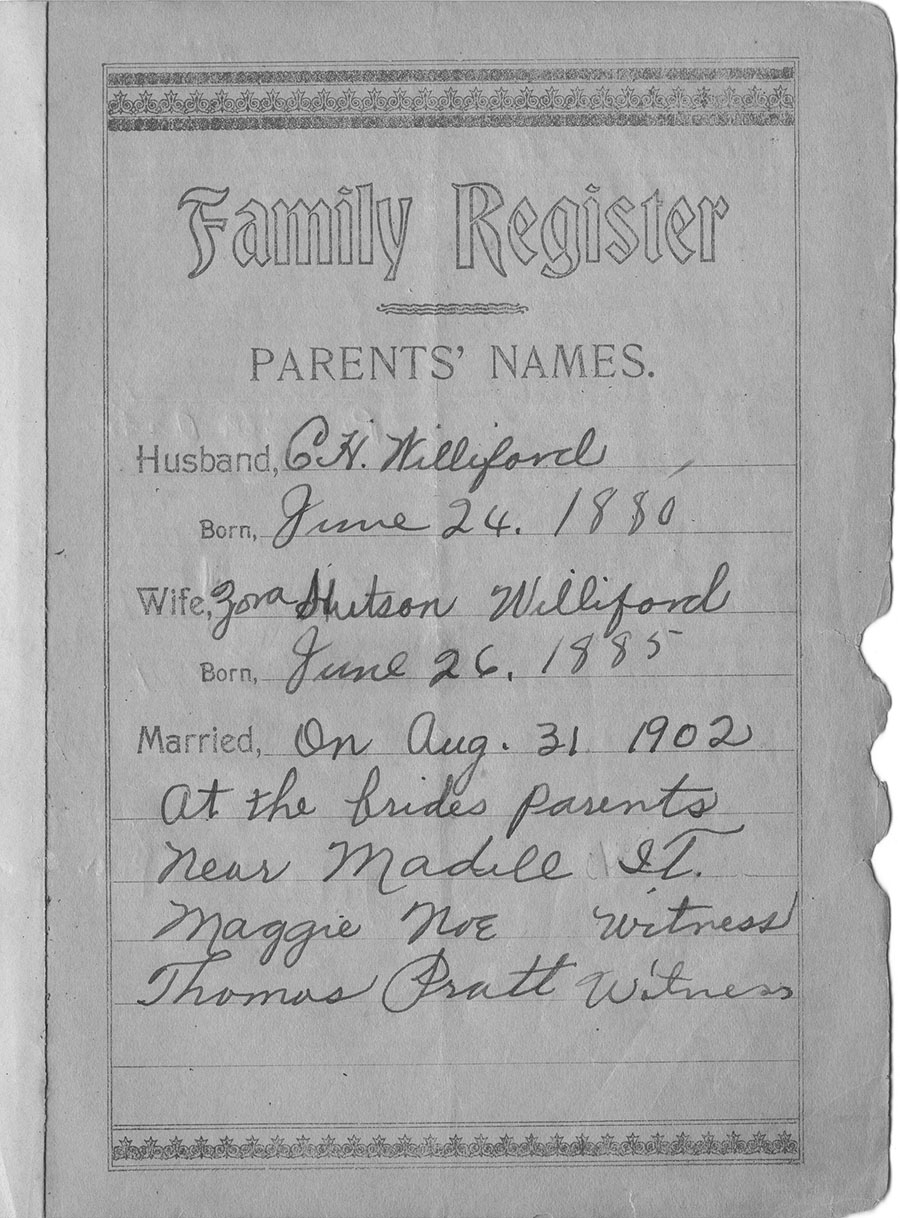 Family Register
PARENTS' NAMES.
Husband, C.H. Williford
Born, June 24. 1880
Wife, Zora Hutson Williford
Born, June 26, 1885
Married, On Aug. 31 1902
At the brides parents
Near Madill I.T.
Maggie Noe Witness
Thomas Pratt Witness